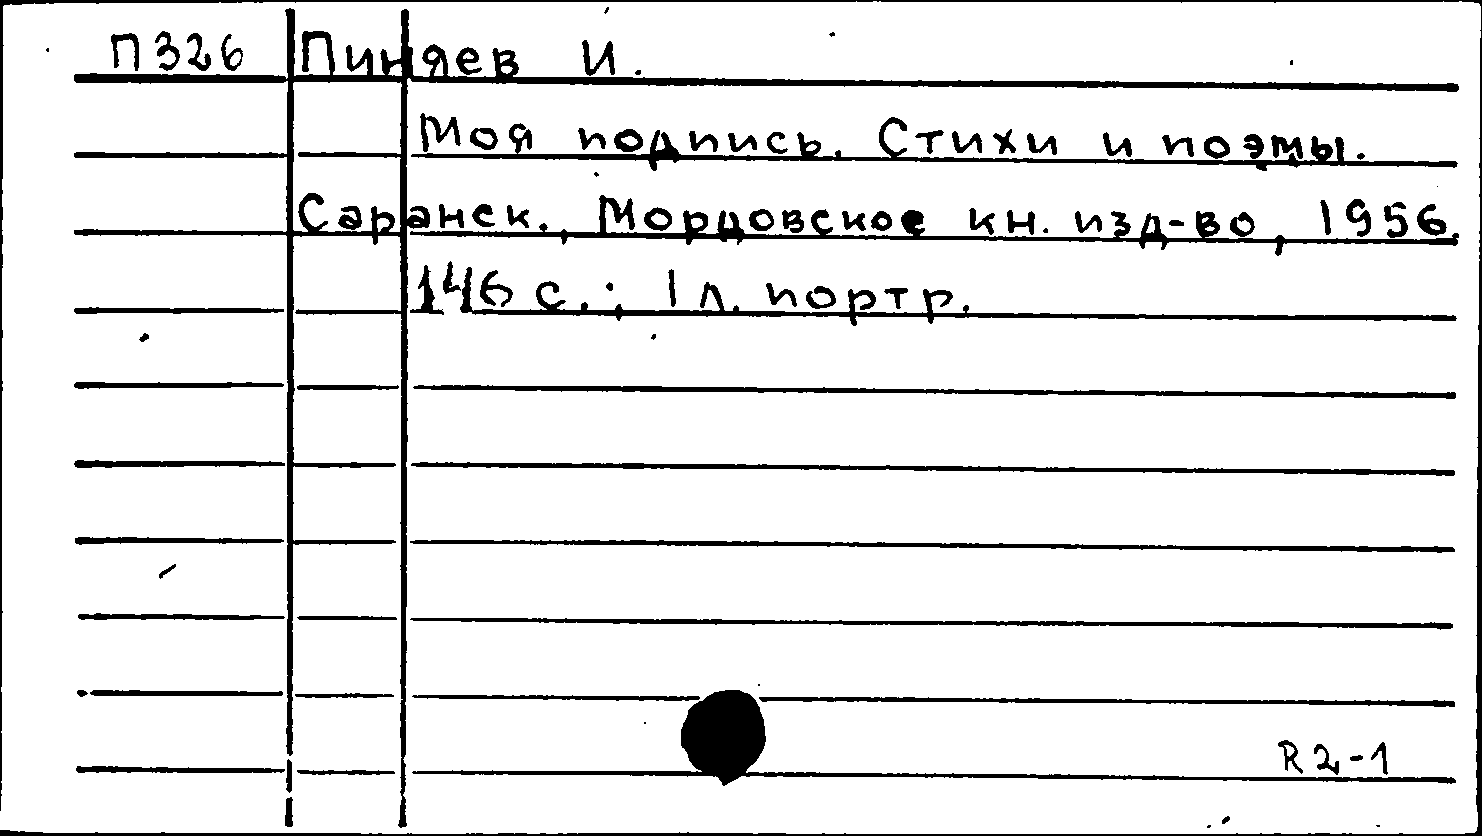 П326 Пиняев И.
Моя подпись. Стихи и поэмы.
Саранск., Мордовское кн. изд-во, 1956.
146 с.; 1 л. портр.
R2-1